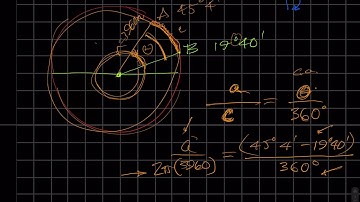 A 45° 4'
3960
θ
B 19° 40'
a / c = θ / 360°
a / 2π(3960) = (45° 4' - 19° 40') / 360°